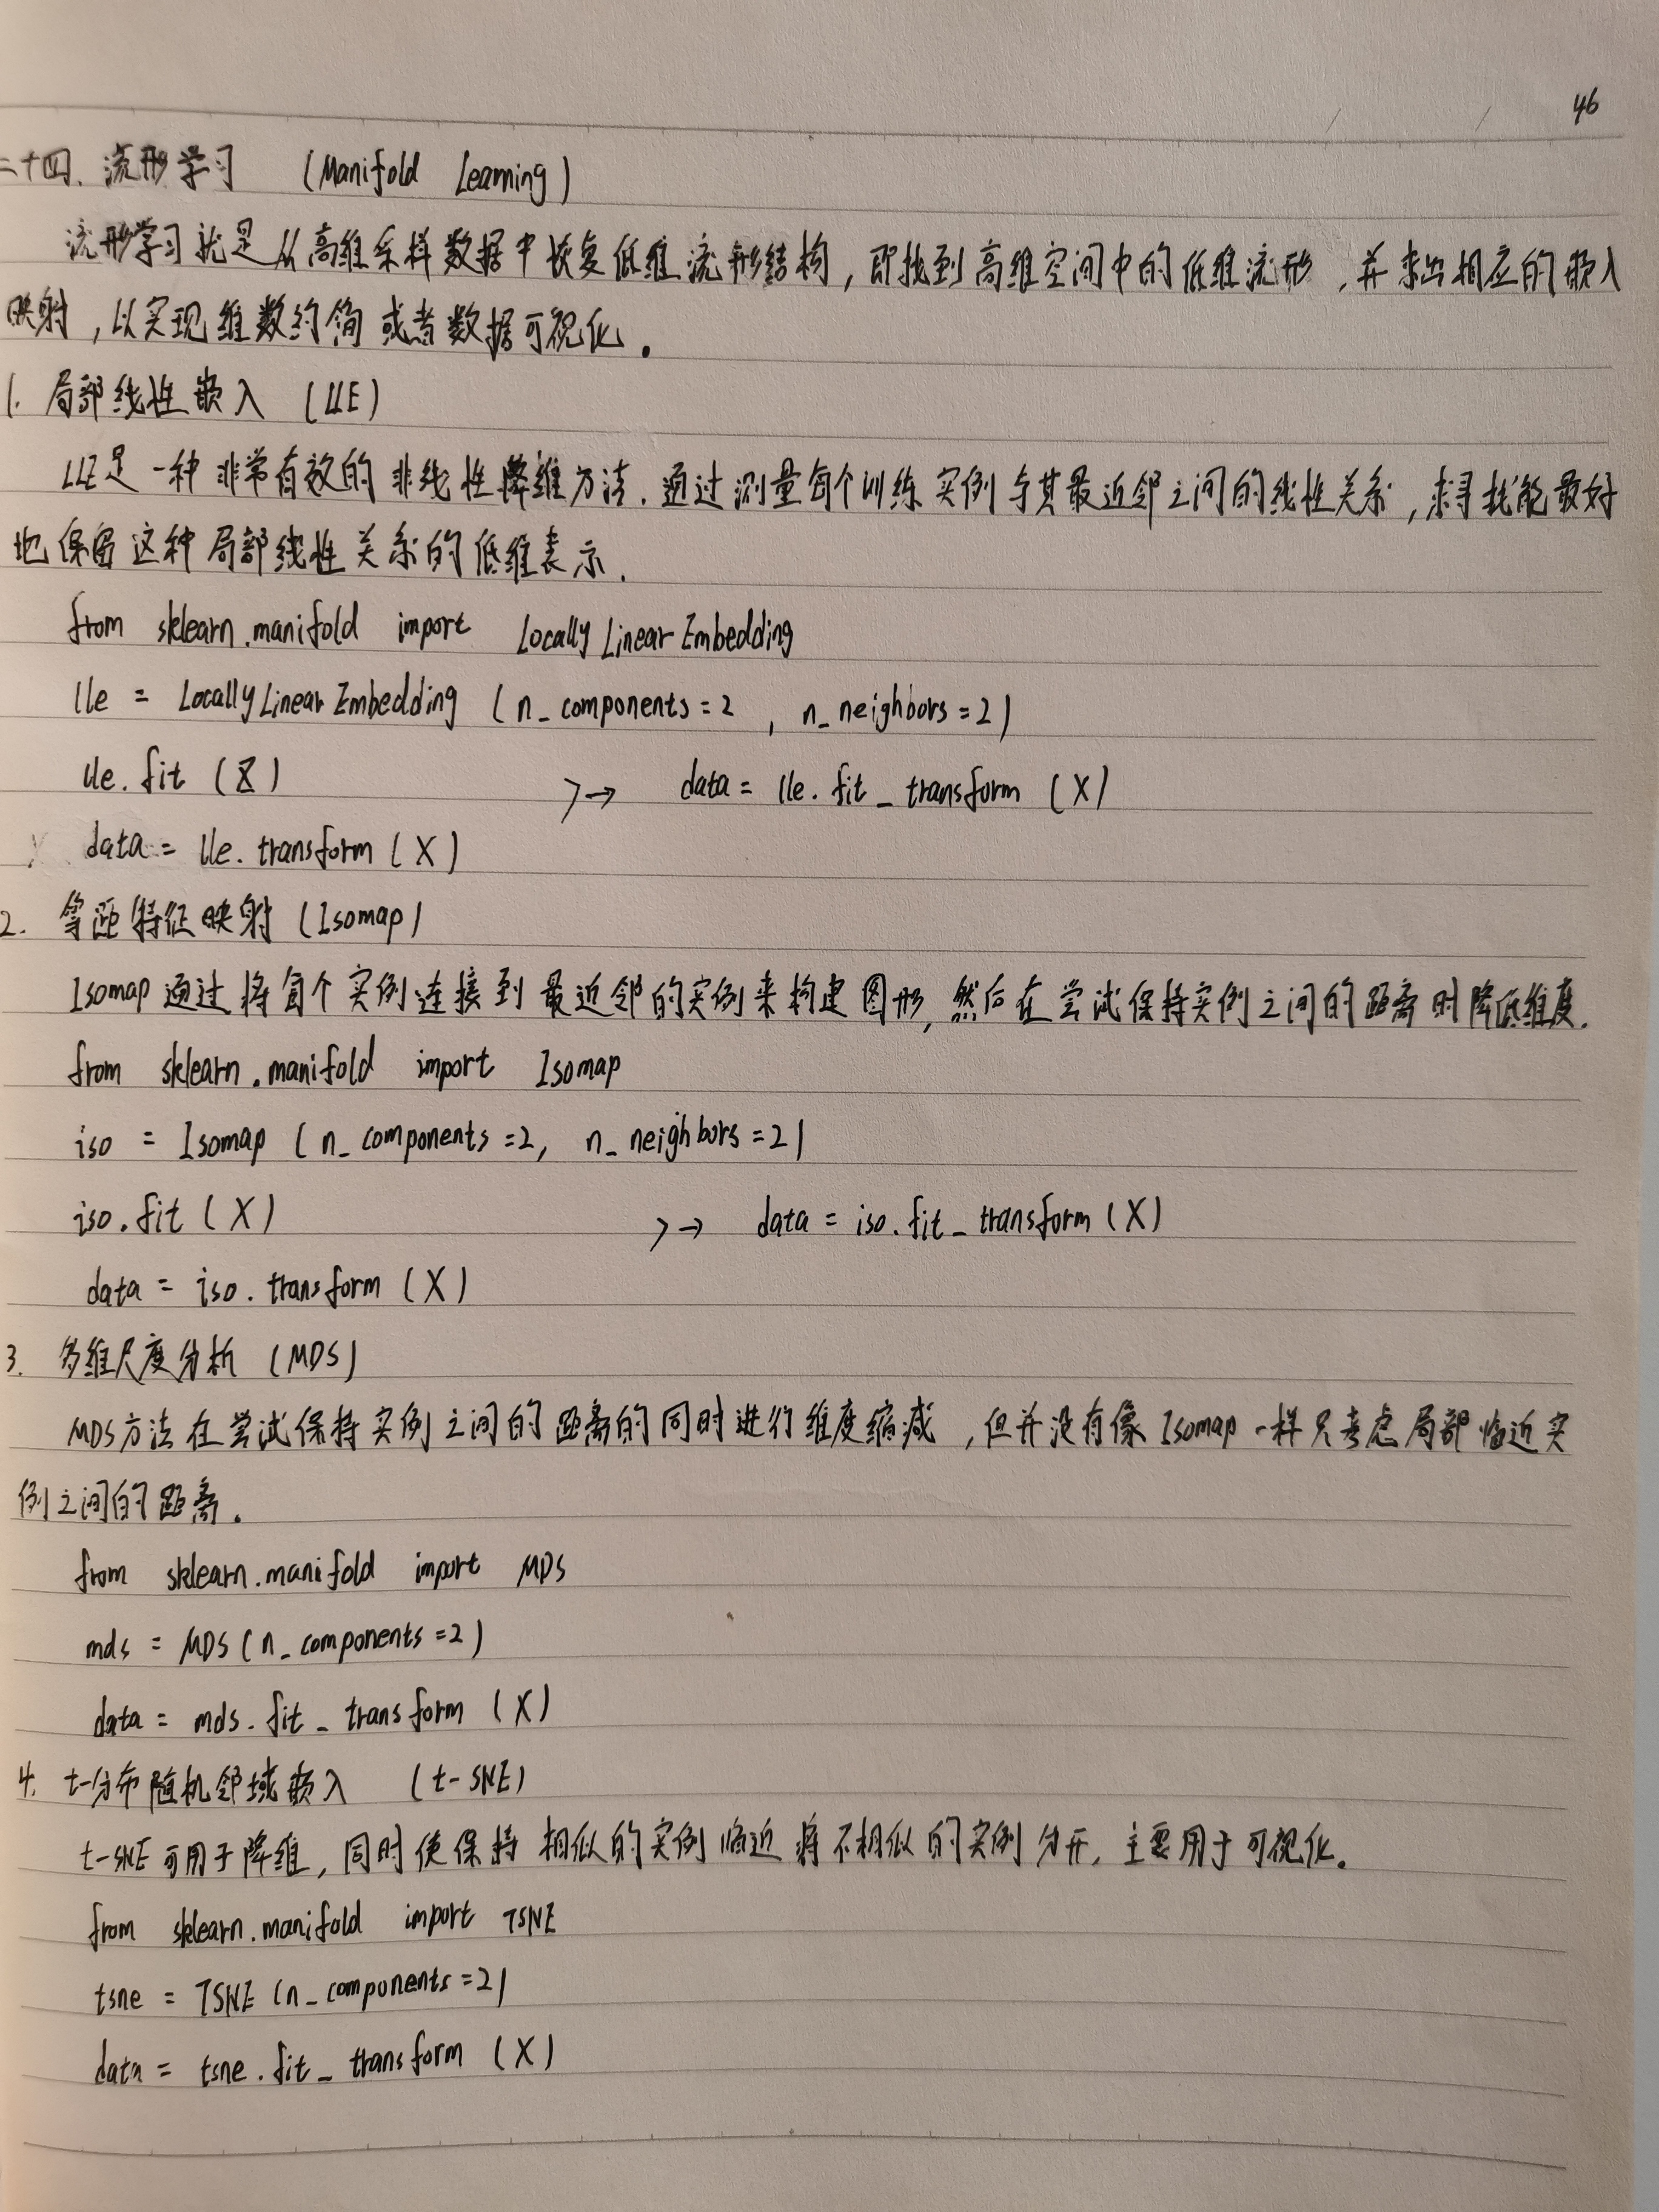 46
二十四. 流形学习 (Manifold Learning)
流形学习就是从高维采样数据中恢复低维流形结构, 即找到高维空间中的低维流形, 并求出相应的嵌入
映射, 以实现维数约简或者数据可视化.
1. 局部线性嵌入 (LLE)
LLE是一种非常有效的非线性降维方法. 通过测量每个训练实例与其最近邻之间的线性关系, 来寻找能最好
地保留这种局部线性关系的低维表示.
from sklearn.manifold import LocallyLinearEmbedding
lle = LocallyLinearEmbedding (n_components=2, n_neighbors=2)
lle.fit (X)
>→ data = lle.fit_transform (X)
data = lle.transform (X)
2. 等距特征映射 (Isomap)
Isomap通过将每个实例连接到最近邻的实例来构建图形, 然后在尝试保持实例之间的距离时降低维度.
from sklearn.manifold import Isomap
iso = Isomap (n_components=2, n_neighbors=2)
iso.fit (X) >→ data = iso.fit_transform (X)
data = iso.transform (X)
3. 多维尺度分析 (MDS)
MDS方法在尝试保持实例之间的距离的同时进行维度缩减, 但并没有像Isomap一样只考虑局部临近实
例之间的距离.
from sklearn.manifold import MDS
mds = MDS (n_components=2)
data = mds.fit_transform (X)
4. t-分布随机邻域嵌入 (t-SNE)
t-SNE可用于降维, 同时使保持相似的实例临近将不相似的实例分开, 主要用于可视化.
from sklearn.manifold import TSNE
tsne = TSNE (n_components=2)
data = tsne.fit_transform (X)